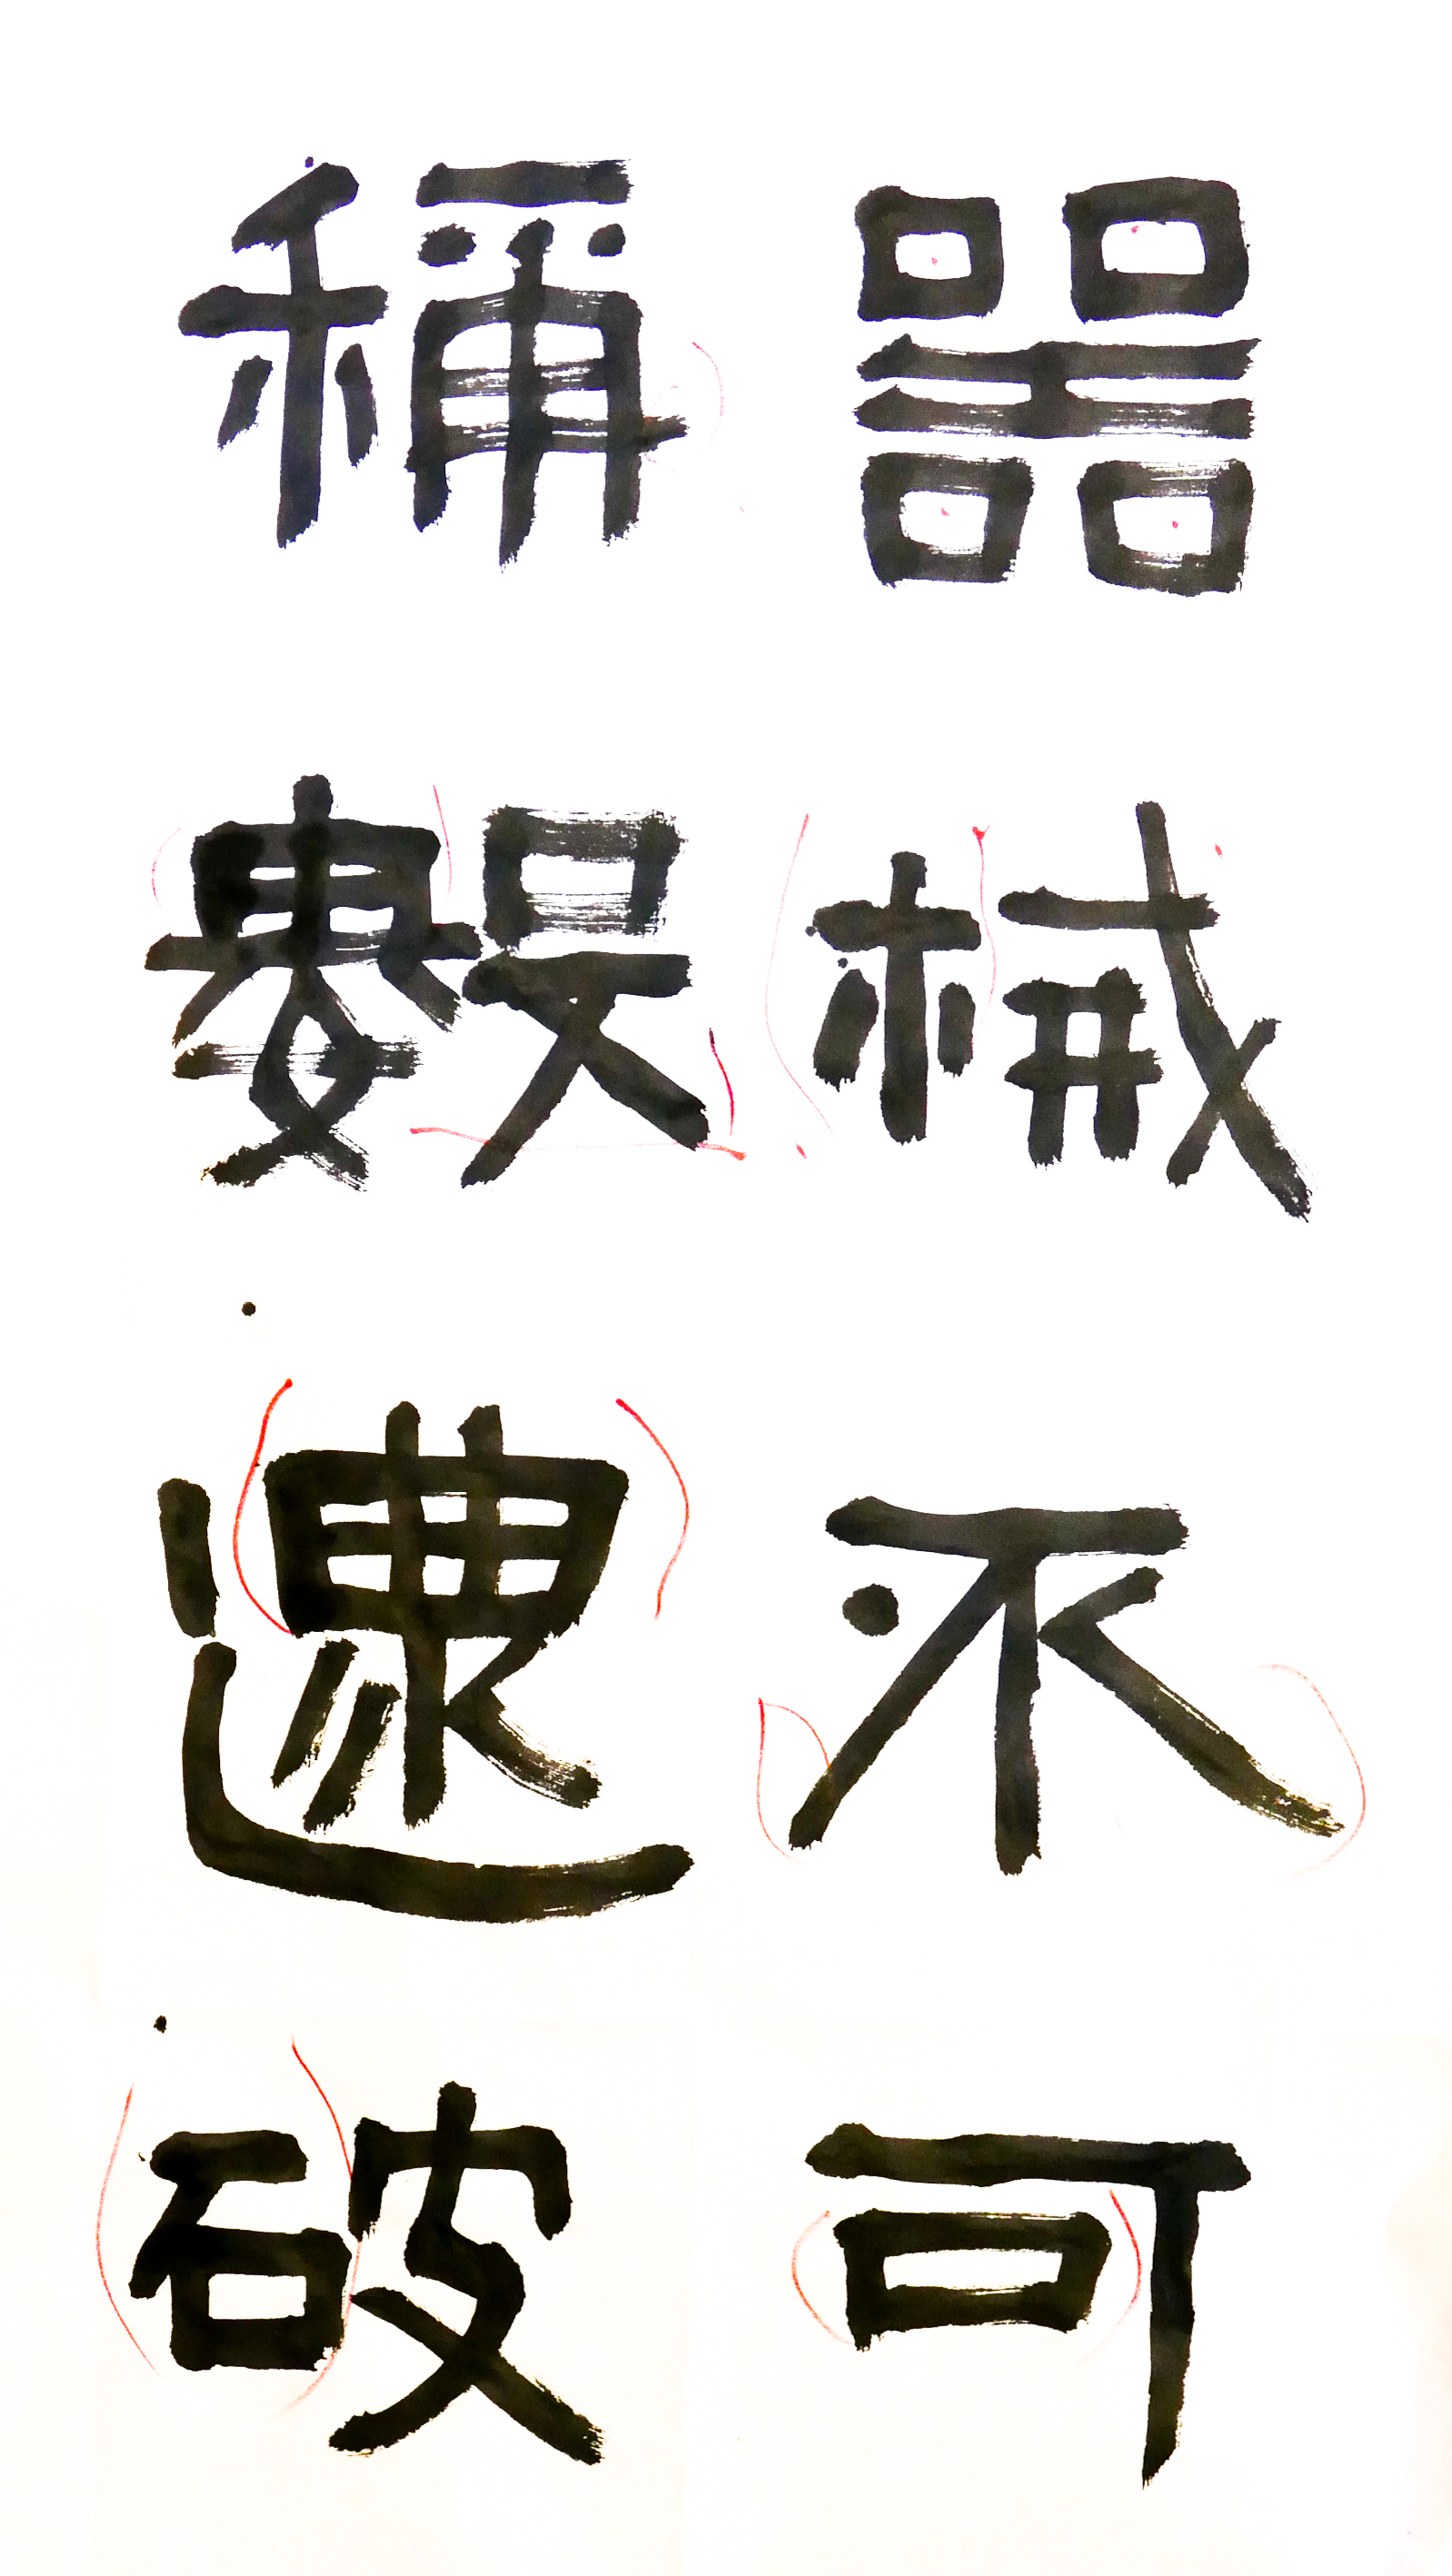 器械不可
稱數還破